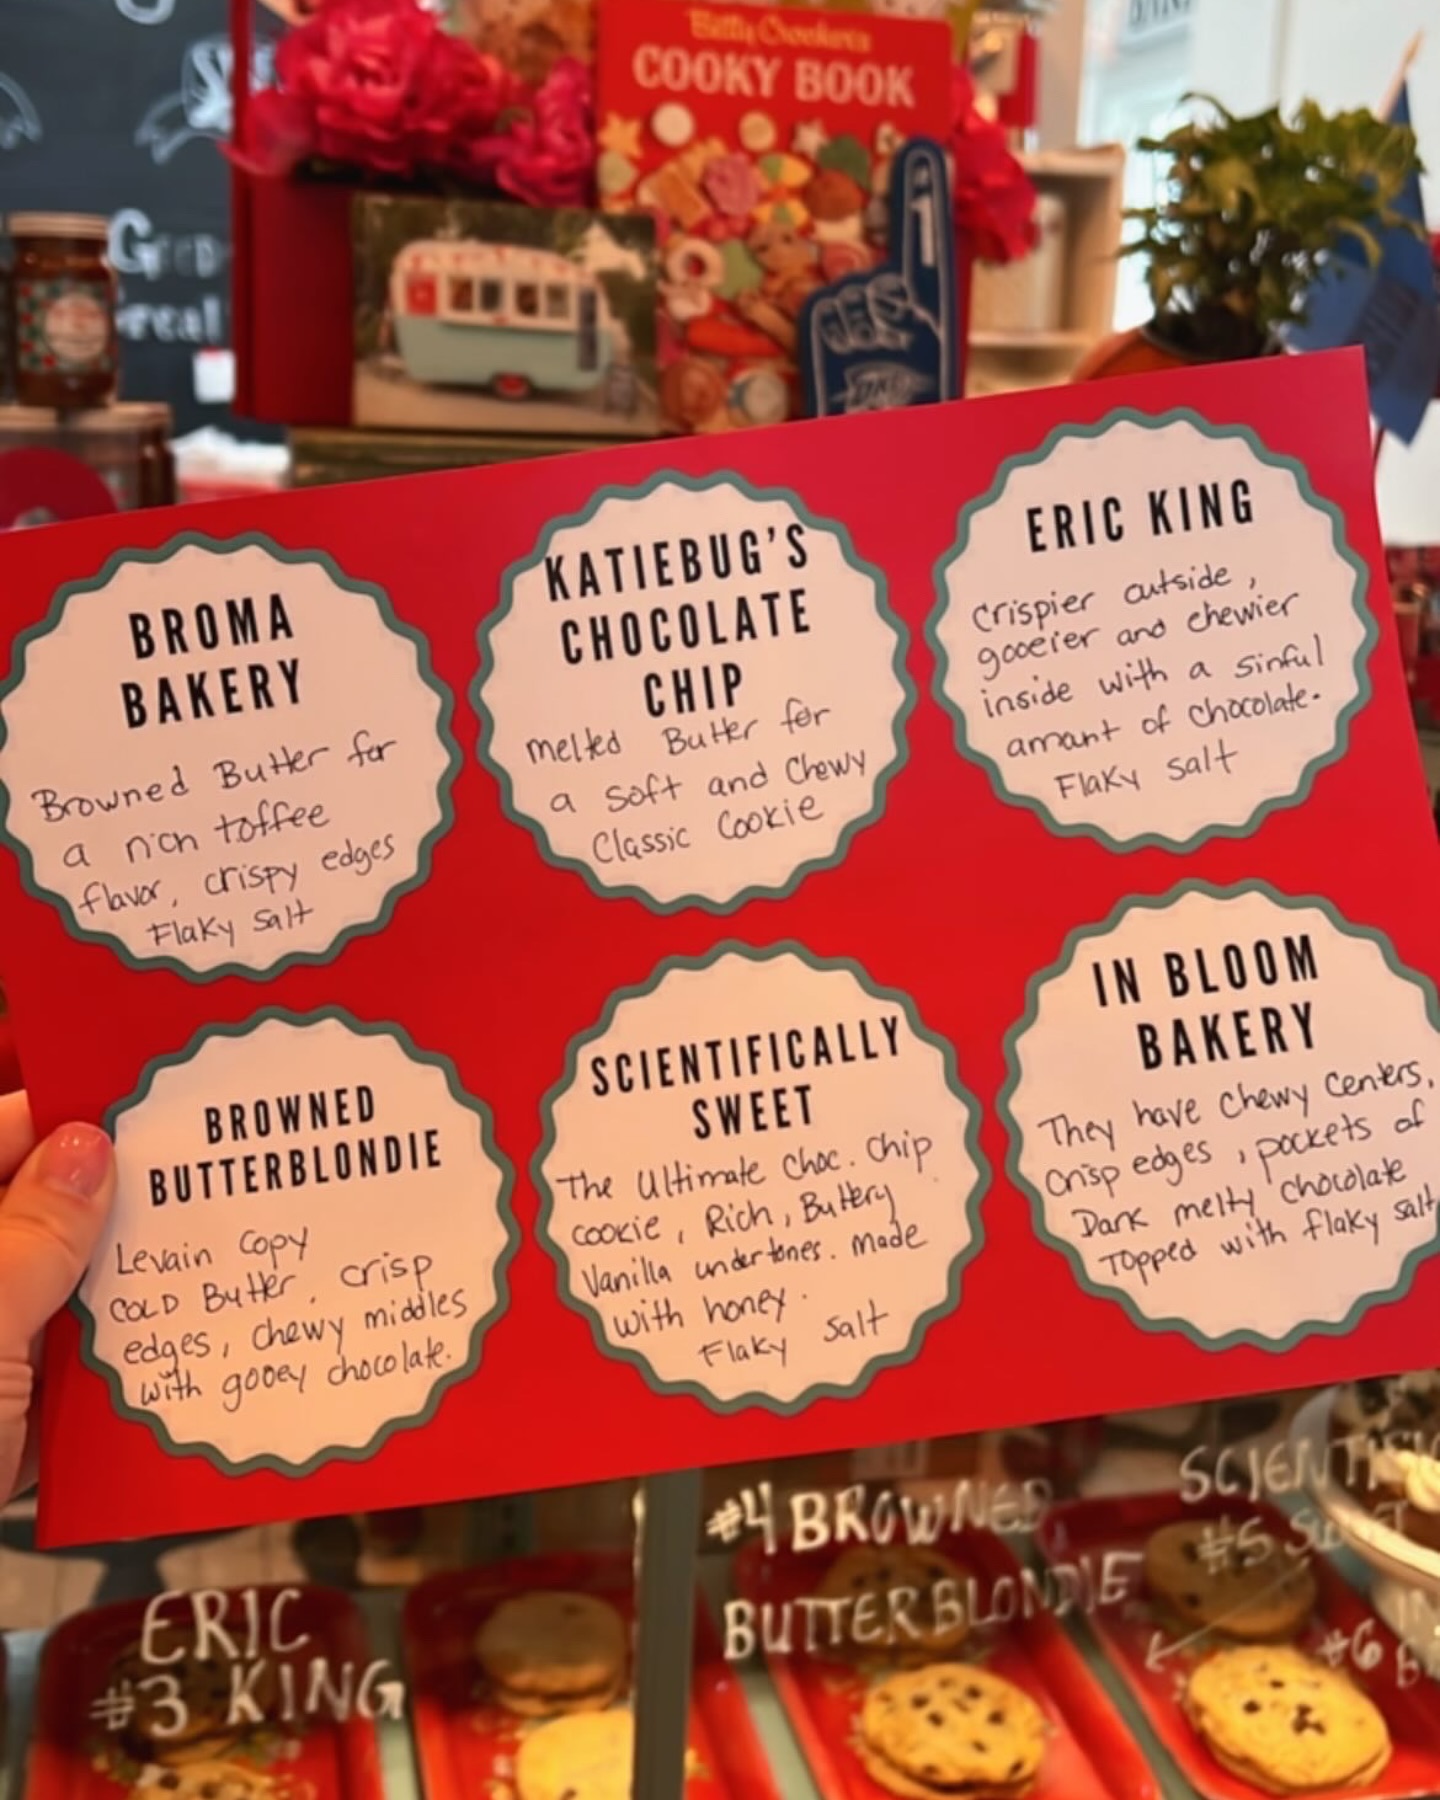 Betty Crocker's
COOKY BOOK
#1
BROMA
BAKERY
Browned Butter for
a rich toffee
flavor, crispy edges
Flaky Salt
KATIEBUG'S
CHOCOLATE
CHIP
melted Butter for
a soft and Chewy
Classic Cookie
ERIC KING
crispier outside,
gooeier and chewier
inside with a sinful
amant of chocolate.
Flaky salt
BROWNED
BUTTERBLONDIE
Levain Copy
COLD Butter, crisp
edges, chewy middles
with gooey chocolate.
SCIENTIFICALLY
SWEET
The Ultimate Choc. Chip
cookie, Rich, Buttery
Vanilla undertones. made
with honey.
Flaky Salt
IN BLOOM
BAKERY
They have Chewy Centers,
crisp edges, pockets of
Dark melty chocolate
Topped with flaky salt
ERIC
#3 KING
#4 BROWNED
BUTTERBLONDIE
#5
#6 IN